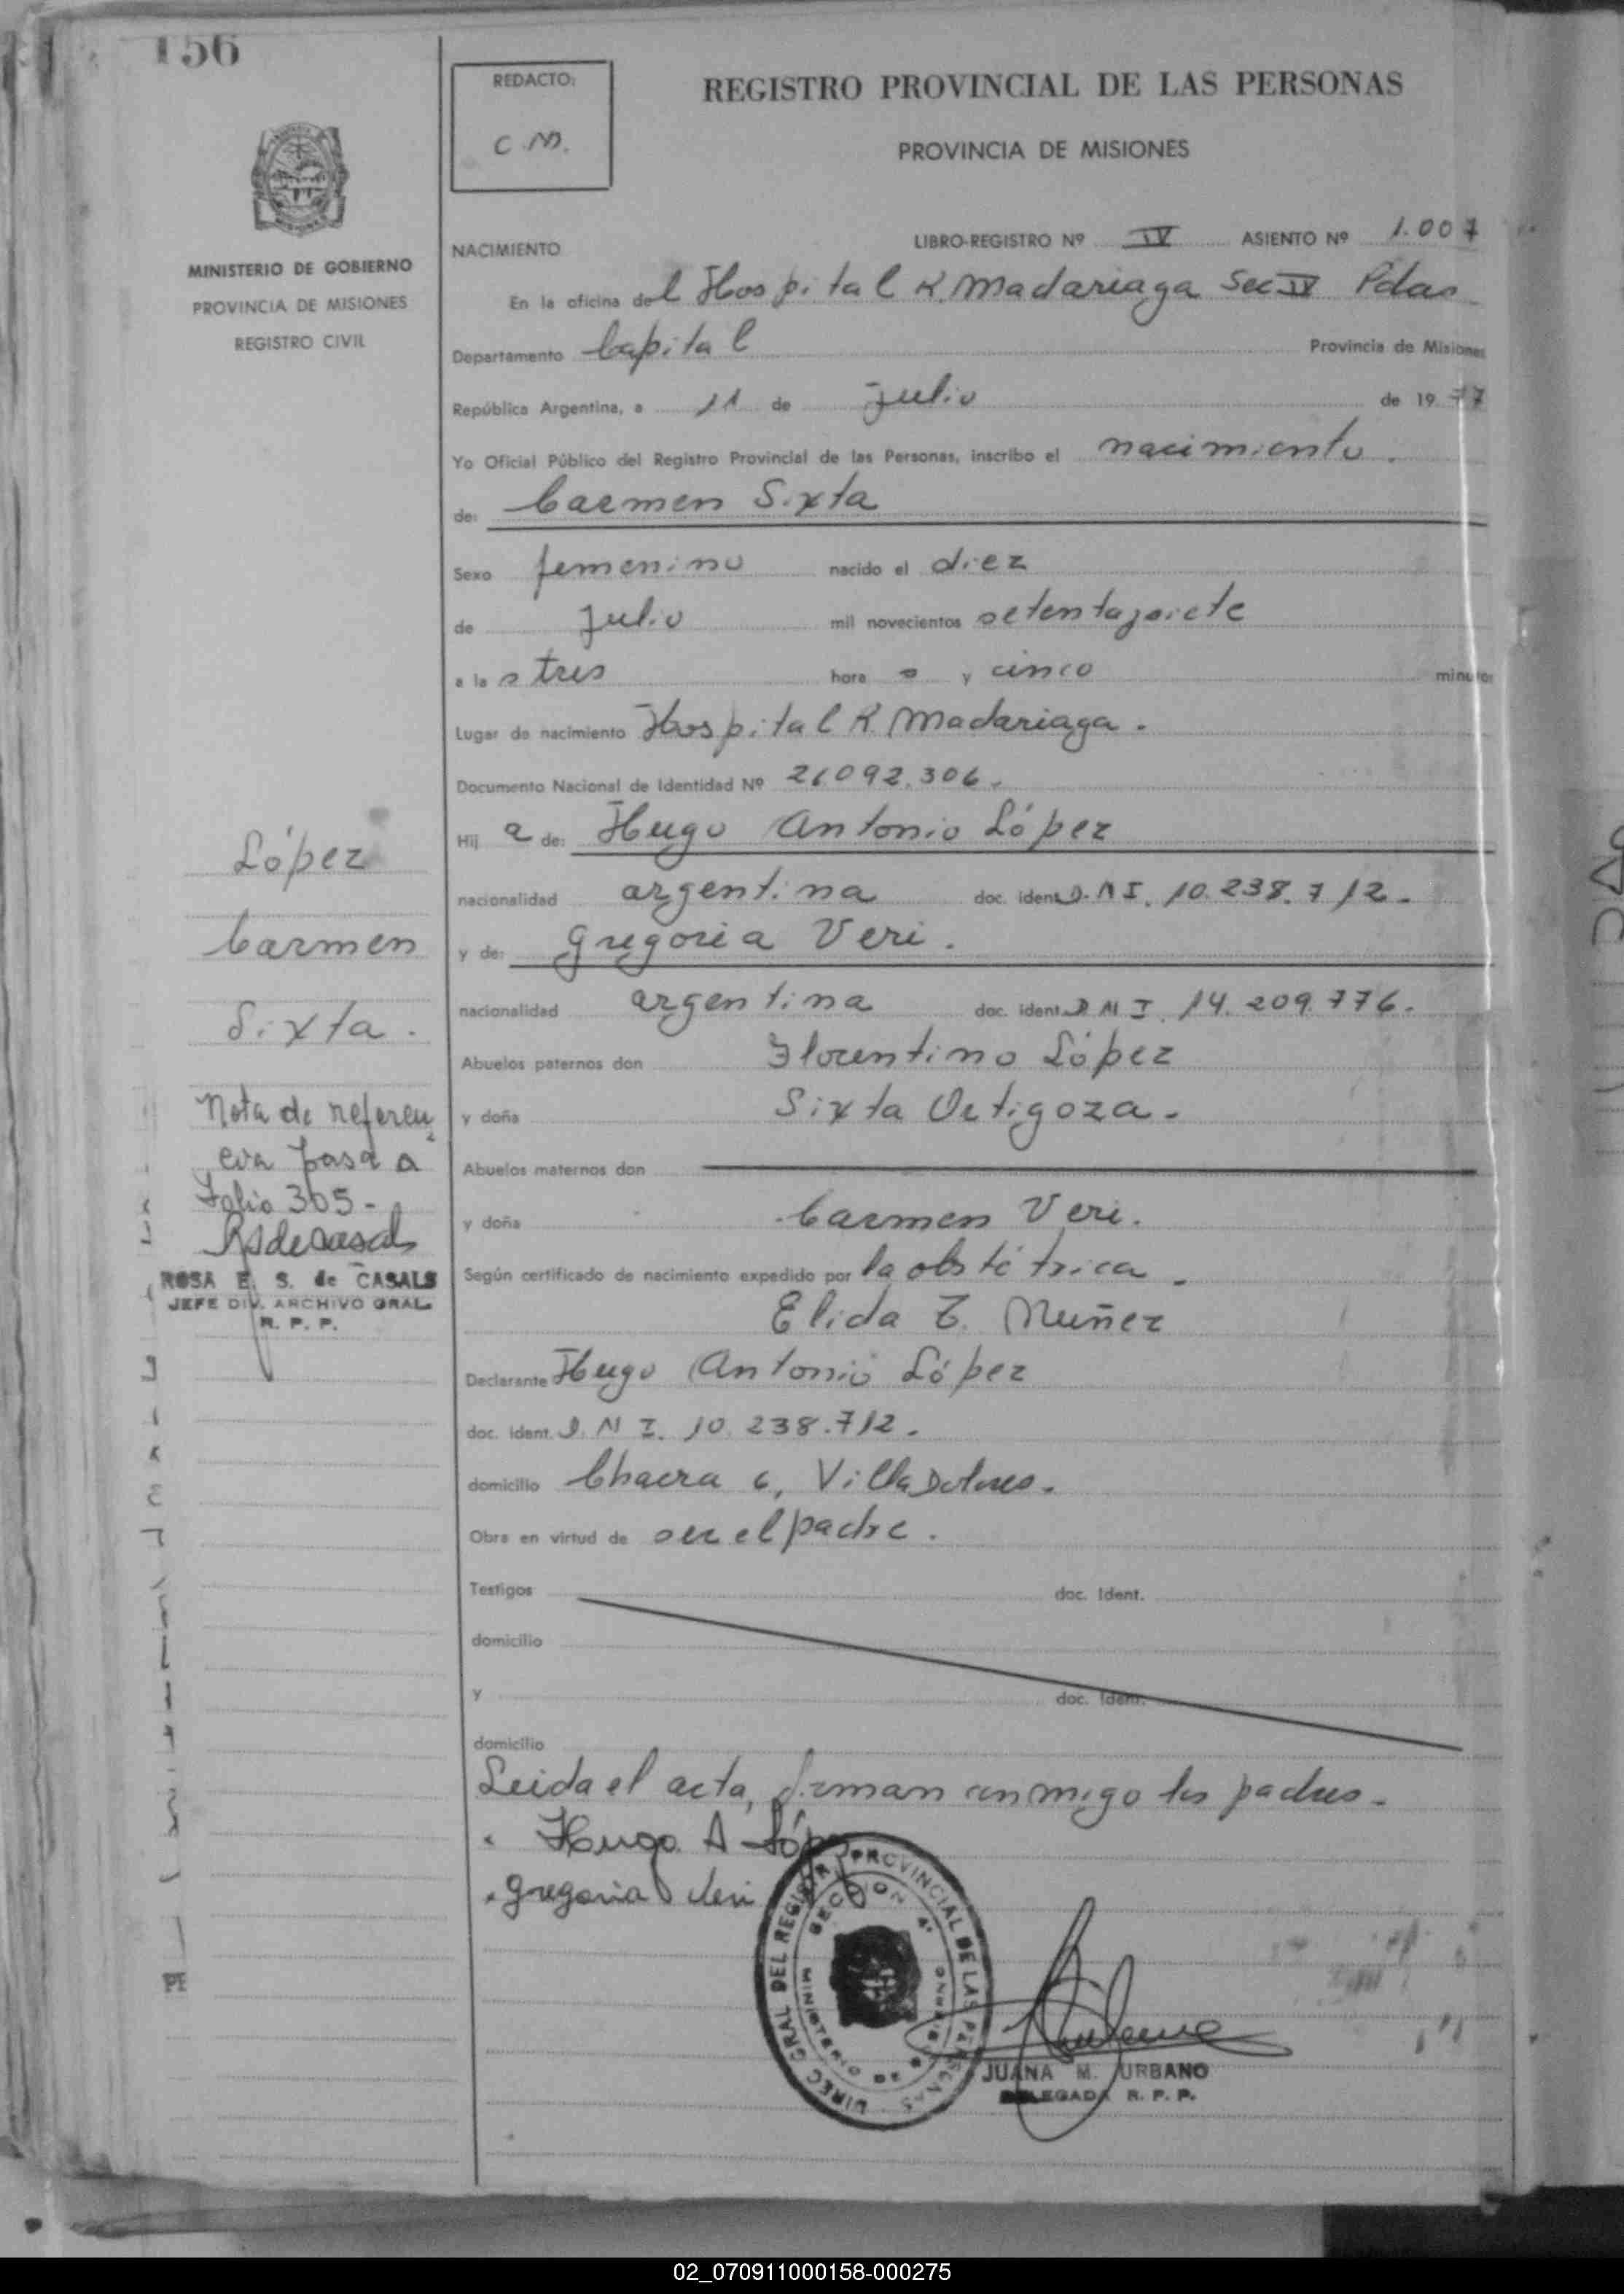 156
REDACTO:
C.M.
REGISTRO PROVINCIAL DE LAS PERSONAS
PROVINCIA DE MISIONES
MINISTERIO DE GOBIERNO
PROVINCIA DE MISIONES
REGISTRO CIVIL
NACIMIENTO LIBRO-REGISTRO Nº IV ASIENTO Nº 1.007
En la oficina del Hospital R. Madariaga Sec IV Pdas
Departamento Capital Provincia de Misiones
República Argentina, a 11 de Julio de 1977
Yo Oficial Público del Registro Provincial de las Personas, inscribo el nacimiento.
de: Carmen Sixta
Sexo femenino nacido el diez
de Julio mil novecientos setentaysiete
a las tres horas y cinco minutos
Lugar de nacimiento Hospital R. Madariaga.
Documento Nacional de Identidad Nº 26092.306.
Hija de: Hugo Antonio López
nacionalidad argentina doc. ident. D.N I. 10.238.712.
y de: Gregoria Veri.
nacionalidad argentina doc. ident. D N I. 14.209.776.
Abuelos paternos don Florentino López
y doña Sixta Ortigoza.
Abuelos maternos don
y doña Carmen Veri.
Según certificado de nacimiento expedido por la obstétrica.
Elida T. Nuñez
Declarante Hugo Antonio López
doc. ident. D. N I. 10.238.712.
domicilio Chacra 6, Villa Dolores.
Obra en virtud de ser el padre.
Testigos doc. Ident.
domicilio
y doc. Ident.
domicilio
Leida el acta, firman conmigo los padres.
Hugo A López
Gregoria Veri
López
Carmen
Sixta.
Nota de referen
cia pasa a
Folio 305-
RSdeCasals
ROSA E. S. de CASALS
JEFE DIV. ARCHIVO GRAL.
R. P. P.
DIREC. GRAL. DEL REGISTRO PROVINCIAL DE LAS PERSONAS
SECCION 4ª
MINISTERIO DE GOBIERNO
JUANA M. URBANO
DELEGADA R. P. P.
PE
02_070911000158-000275